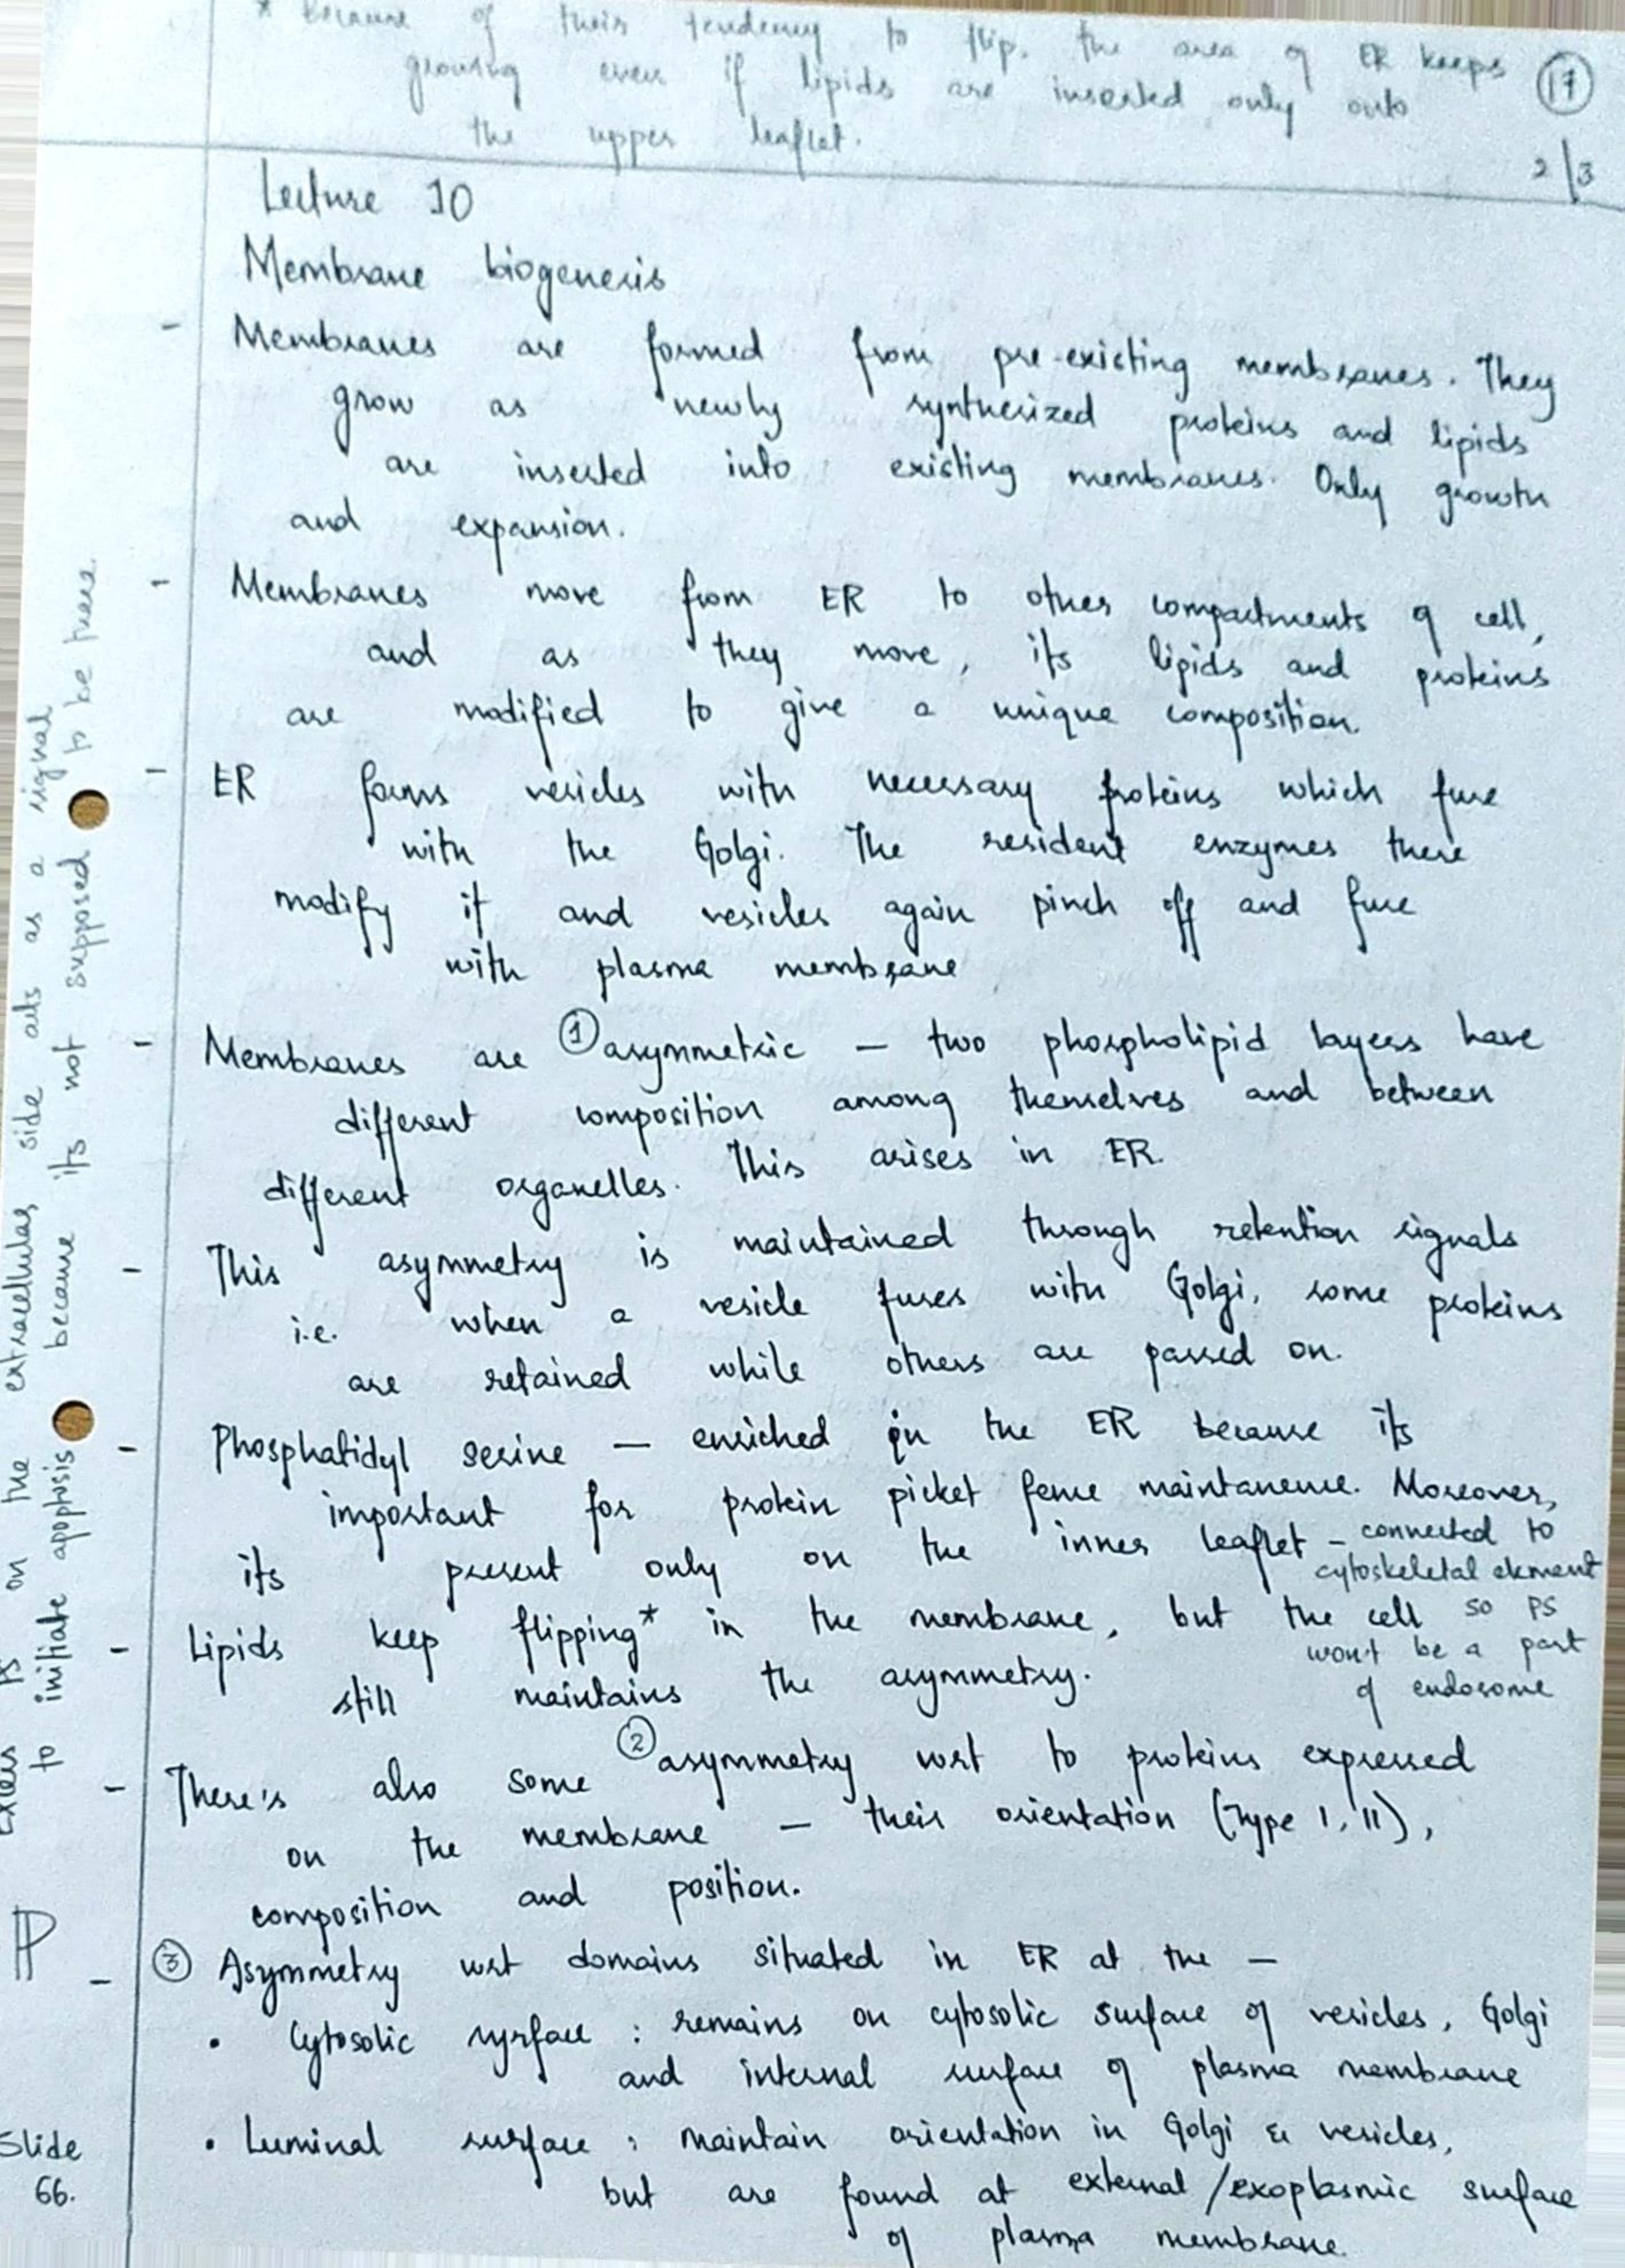 * Because of their tendency to flip, the area of ER keeps
growing even if lipids are inserted only onto
the upper leaflet.
17
2/3
Lecture 10
Membrane biogenesis
- Membranes are formed from pre-existing membranes. They
grow as newly synthesized proteins and lipids
are inserted into existing membranes. Only growth
and expansion.
- Membranes move from ER to other compartments of cell,
and as they move, its lipids and proteins
are modified to give a unique composition.
- ER forms vesicles with necessary proteins which fuse
with the Golgi. The resident enzymes there
modify it and vesicles again pinch off and fuse
with plasma membrane
- Membranes are ① asymmetric — two phospholipid layers have
different composition among themselves and between
different organelles. This arises in ER.
- This asymmetry is maintained through retention signals
i.e. when a vesicle fuses with Golgi, some proteins
are retained while others are passed on.
- Phosphatidyl serine — enriched in the ER because its
important for protein picket fence maintanence. Moreover,
its present only on the inner leaflet - connected to
cytoskeletal element
so PS
won't be a part
of endosome
- Lipids keep flipping* in the membrane, but the cell
still maintains the asymmetry.
- There's also some ② asymmetry wrt to proteins expressed
on the membrane — their orientation (Type I, II),
composition and position.
- ③ Asymmetry wrt domains situated in ER at the —
• Cytosolic surface : remains on cytosolic surface of vesicles, Golgi
and internal surface of plasma membrane
• Luminal surface : maintain orientation in Golgi & vesicles,
but are found at external/exoplasmic surface
of plasma membrane
Excess PS on the extracellular side acts as a signal
to initiate apoptosis because its not supposed to be there.
Slide
66.